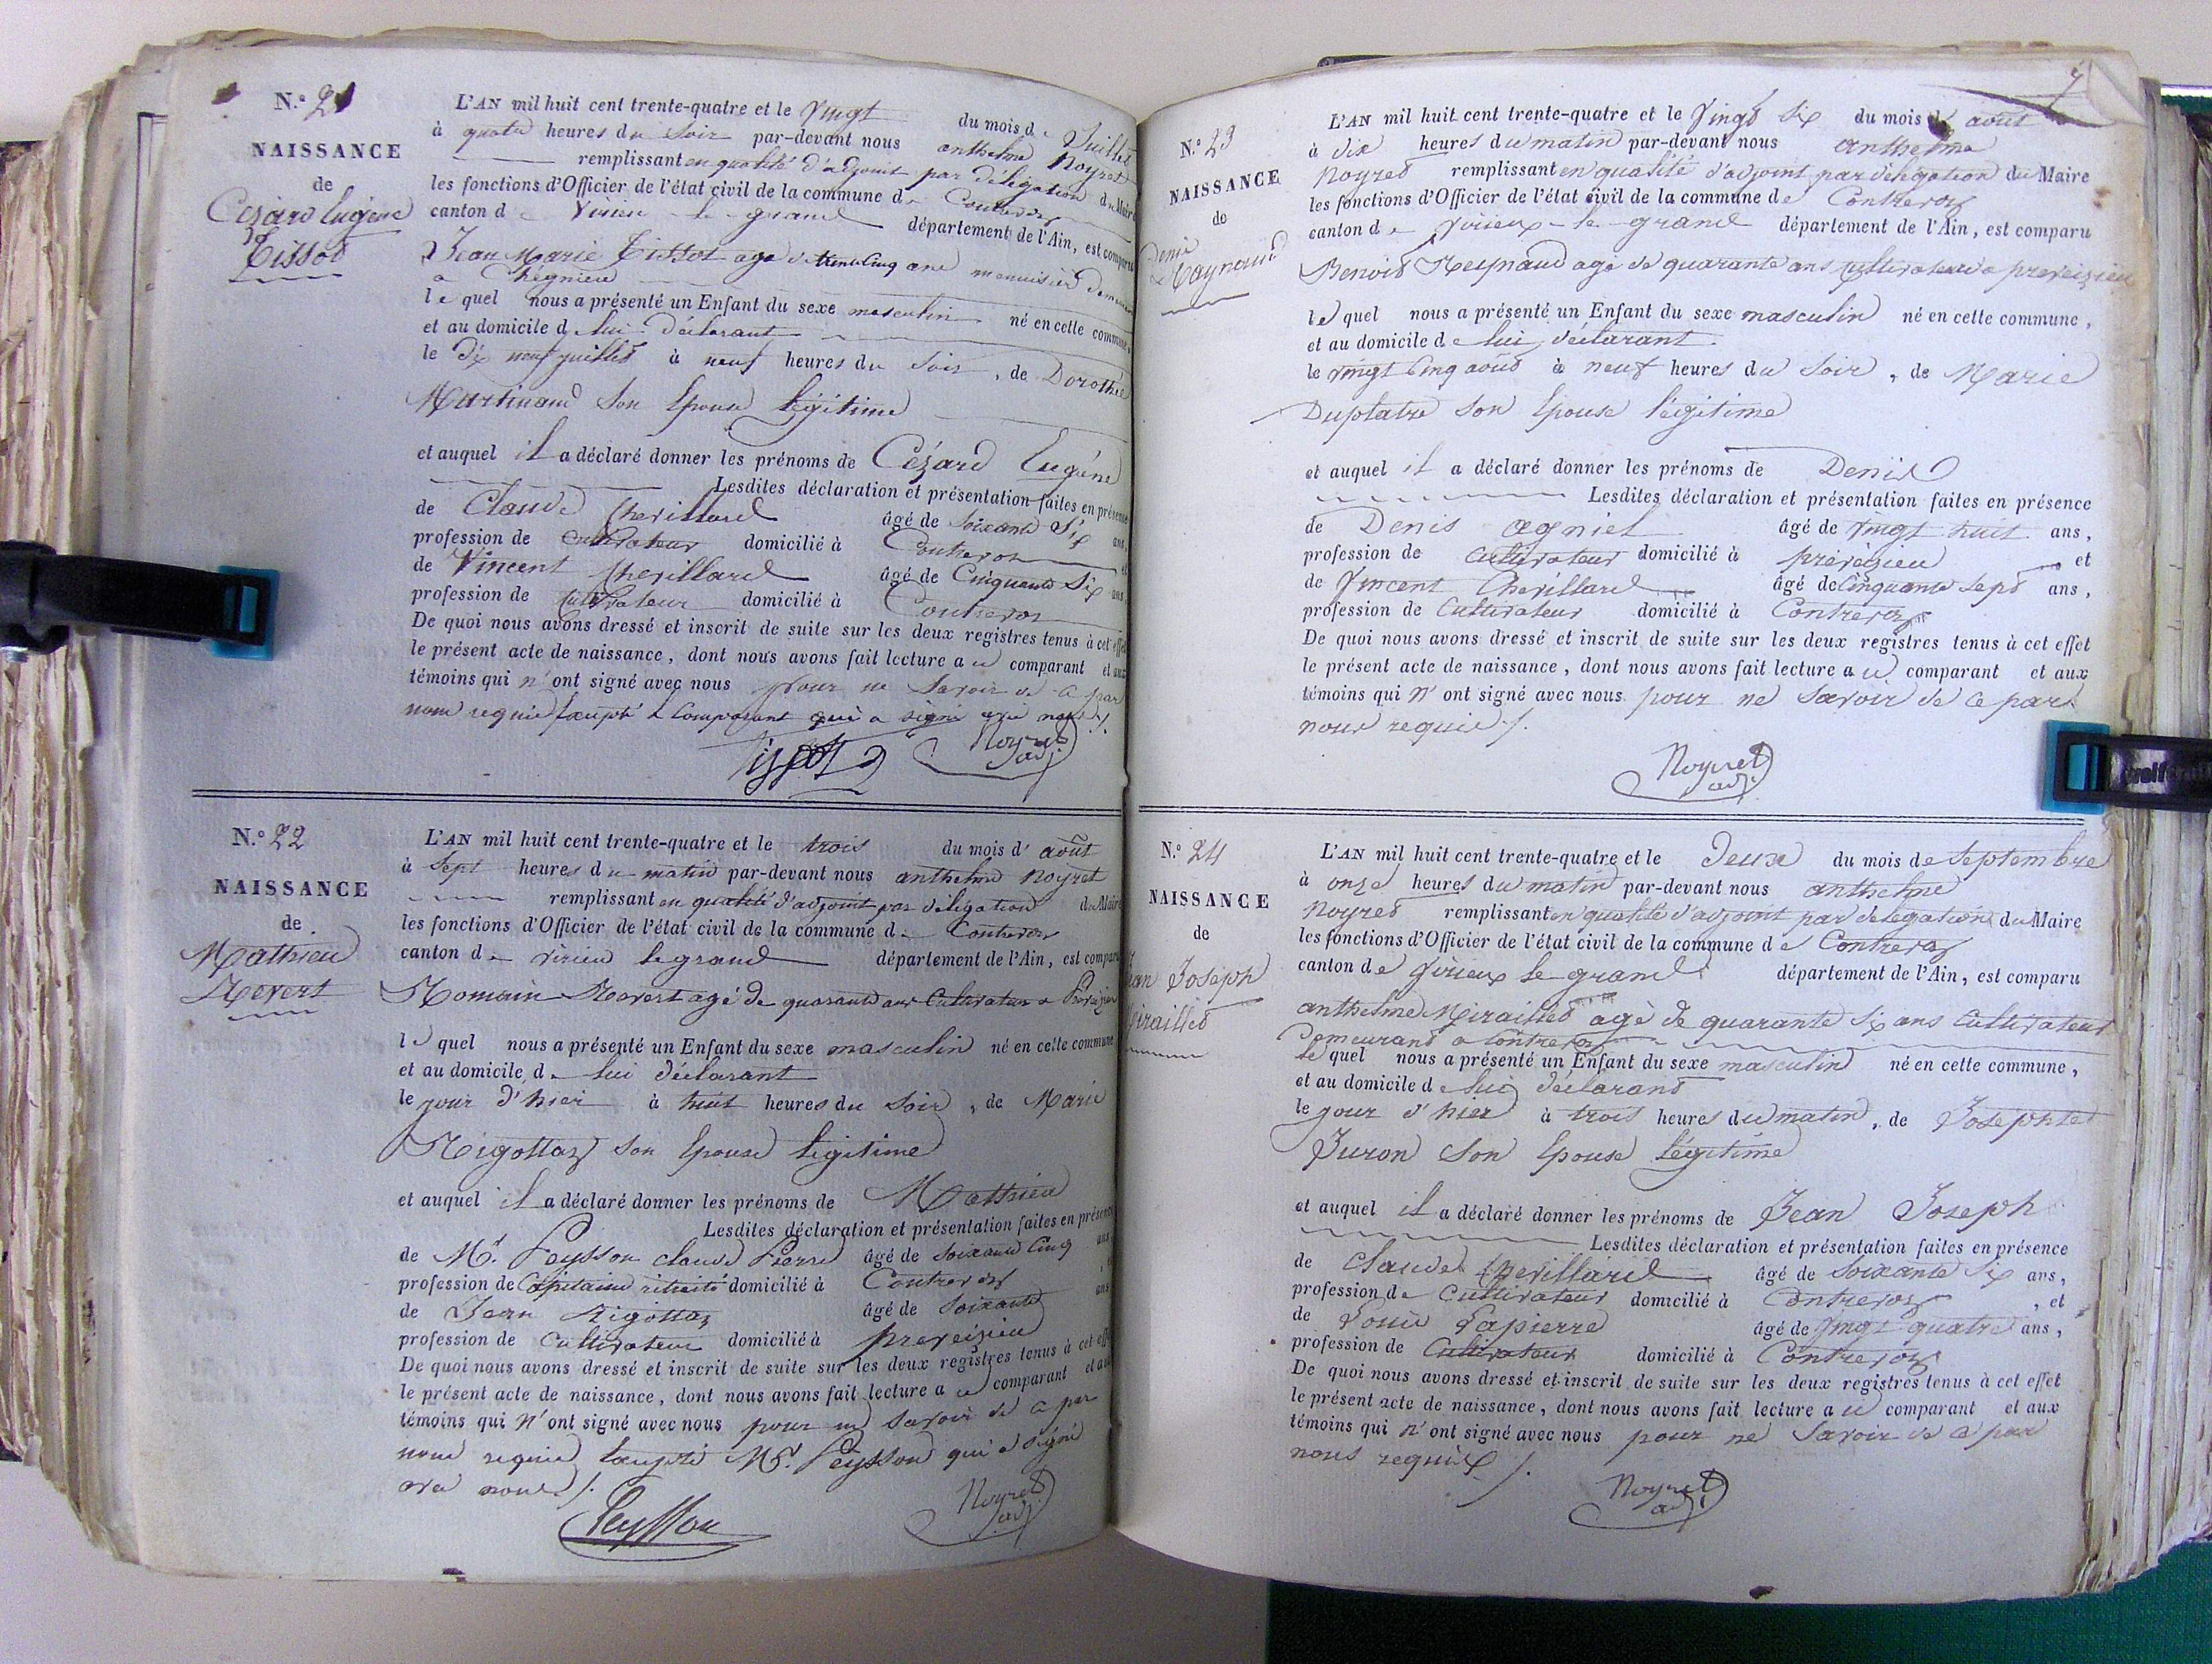 N.º 21
NAISSANCE
de
Cézard Eugène
Tissot
L'AN mil huit cent trente-quatre et le vingt du mois de Juillet
à quatre heures du soir par-devant nous anthelme Noyret
remplissant en qualité d'adjoint par délégation du Maire
les fonctions d'Officier de l'état civil de la commune de Contrevoz
canton de Virieu le grand département de l'Ain, est comparu
Jean Marie Tissot agé de trente Cinq ans menuisier
a Chegnieu
le quel nous a présenté un Enfant du sexe masculin né en cette commune,
et au domicile de lui déclarant
le dix neuf juillet à neuf heures du soir, de Dorothée
Martinand son Epouse légitime
et auquel il a déclaré donner les prénoms de Cézard Eugène
Lesdites déclaration et présentation faites en présence
de Claude Cherillard âgé de soixante Six ans,
profession de Cultivateur domicilié à Contrevoz et
de Vincent Cherillard âgé de Cinquante Six ans,
profession de Cultivateur domicilié à Contrevoz
De quoi nous avons dressé et inscrit de suite sur les deux registres tenus à cet effet
le présent acte de naissance, dont nous avons fait lecture au comparant et aux
témoins qui n'ont signé avec nous pour ne savoir de ce par
nous requis Excepté le Comparant qui a signé avec nous /.
Tissot Noyret adj.
N.º 22
NAISSANCE
de
Mathieu
Revert
L'AN mil huit cent trente-quatre et le trois du mois d'août
à Sept heures du matin par-devant nous anthelme Noyret
remplissant en qualité d'adjoint par délégation du Maire
les fonctions d'Officier de l'état civil de la commune de Contrevoz
canton de virieu le grand département de l'Ain, est comparu
Romain Revert agé de quarante ans Cultivateur a Preveizieu
le quel nous a présenté un Enfant du sexe masculin né en cette commune
et au domicile de lui déclarant
le jour d'hier à huit heures du soir, de Marie
Rigottaz son Epouse légitime
et auquel il a déclaré donner les prénoms de Mathieu
Lesdites déclaration et présentation faites en présence
de Mr. Peysson claude Pierre âgé de soixante Cinq ans
profession de Capitaine retraité domicilié à Contrevoz
de Jean Rigottaz âgé de soixante ans
profession de Cultivateur domicilié à preveizieu
De quoi nous avons dressé et inscrit de suite sur les deux registres tenus à cet effet
le présent acte de naissance, dont nous avons fait lecture au comparant et aux
témoins qui n'ont signé avec nous pour ne savoir de ce par
nous requis Excepté Mr. Peysson qui a signé
avec nous /.
Peysson Noyret adj.
N.º 23
NAISSANCE
de
Denis
Raynaud
L'AN mil huit cent trente-quatre et le vingt six du mois d'août
à dix heures du matin par-devant nous anthelme
Noyret remplissant en qualité d'adjoint par délégation du Maire
les fonctions d'Officier de l'état civil de la commune de Contrevoz
canton de virieux le grand département de l'Ain, est comparu
Benoit Reynaud agé de quarante ans cultivateur a preveizieu
le quel nous a présenté un Enfant du sexe masculin né en cette commune,
et au domicile de lui déclarant
le vingt Cinq août à neuf heures du soir, de Marie
Duplatre son Epouse légitime
et auquel il a déclaré donner les prénoms de Denis
Lesdites déclaration et présentation faites en présence
de Denis agniel âgé de vingt huit ans,
profession de Cultivateur domicilié à prévézieu et
de Vincent Cherillard âgé de Cinquante sept ans,
profession de Cultivateur domicilié à Contrevoz
De quoi nous avons dressé et inscrit de suite sur les deux registres tenus à cet effet
le présent acte de naissance, dont nous avons fait lecture au comparant et aux
témoins qui n'ont signé avec nous pour ne savoir de ce par
nous requis /.
Noyret adj.
N.º 24
NAISSANCE
de
Jean Joseph
Miraillet
L'AN mil huit cent trente-quatre et le Deux du mois de Septembre
à onze heures du matin par-devant nous anthelme
Noyret remplissant en qualité d'adjoint par délégation du Maire
les fonctions d'Officier de l'état civil de la commune de Contrevoz
canton de Virieux le grand département de l'Ain, est comparu
anthelme Miraillet agé de quarante six ans Cultivateur
Demeurant a Contrevoz
le quel nous a présenté un Enfant du sexe masculin né en cette commune,
et au domicile de lui déclarant
le jour d'hier à trois heures du matin, de Josephte
Juron son Epouse légitime
et auquel il a déclaré donner les prénoms de Jean Joseph
Lesdites déclaration et présentation faites en présence
de Claude Cherillard âgé de soixante six ans,
profession de Cultivateur domicilié à Contrevoz, et
de Louis Lapierre âgé de vingt quatre ans,
profession de Cultivateur domicilié à Contrevoz
De quoi nous avons dressé et inscrit de suite sur les deux registres tenus à cet effet
le présent acte de naissance, dont nous avons fait lecture au comparant et aux
témoins qui n'ont signé avec nous pour ne savoir de ce par
nous requis /.
Noyret adj.